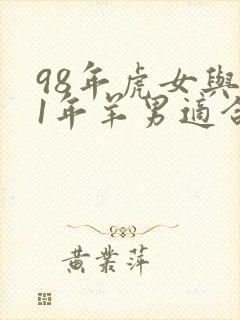 98年虎女與
1年羊男適合
黄業萍